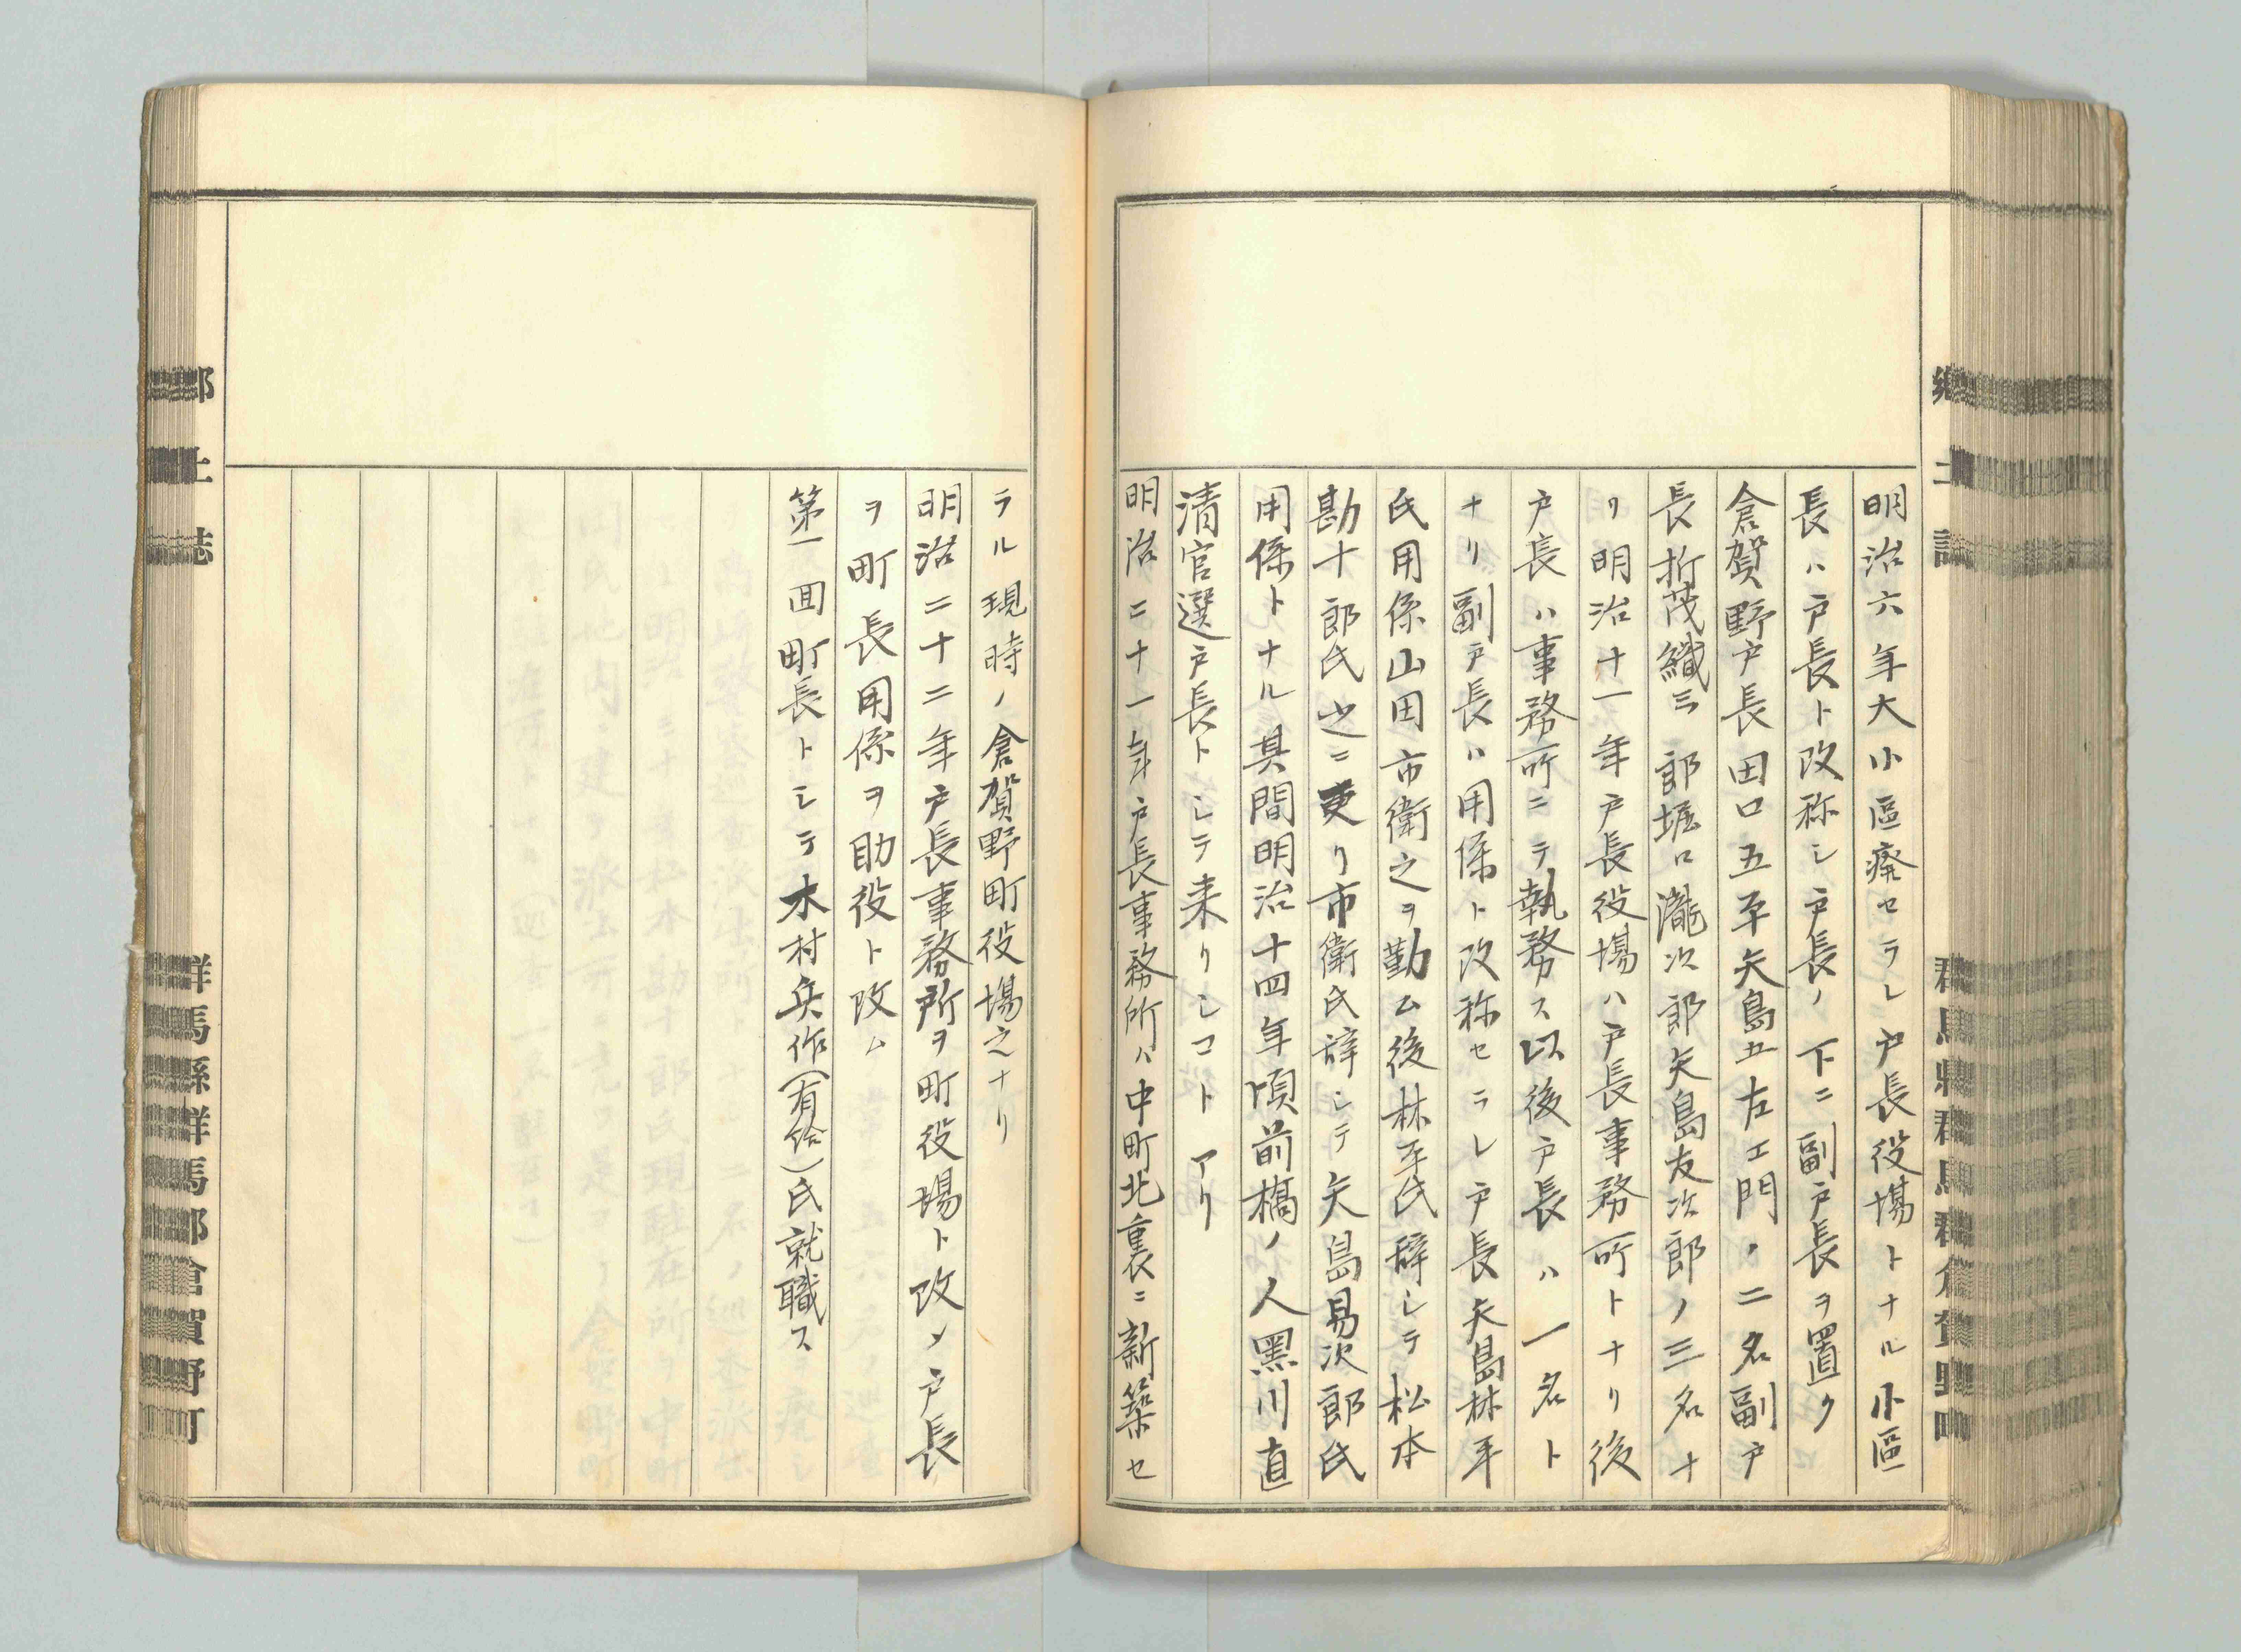 明治六年大小區癈セラレ戸長役場トナル小區
長ハ戸長ト改称シ戸長ノ下ニ副戸長ヲ置ク
倉賀野戸長田口五平矢島五左エ門ノ二名副戸
長折茂織三郎堀口瀧次郎矢島友次郎ノ三名ナ
リ明治十一年戸長役場ハ戸長事務所トナリ後
戸長ハ事務所ニテ執務ス以後戸長ハ一名ト
ナリ副戸長ハ用係ト改称セラレ戸長矢島林平
氏用係山田市衛之ヲ勤ム後林平氏辞シテ松本
勘十郎氏之ニ更リ市衛氏辞シテ矢島易次郎氏
用係トナル其間明治十四年頃前橋ノ人黑川直
清官選戸長トシテ来リシコトアリ
明治二十一年戸長事務所ハ中町北裏ニ新築セ
ラル現時ノ倉賀野町役場之ナリ
明治二十二年戸長事務所ヲ町役場ト改メ戸長
ヲ町長用係ヲ助役ト改ム
第一回町長トシテ木村兵作(有給)氏就職ス
郷土誌
群馬縣群馬郡倉賀野町